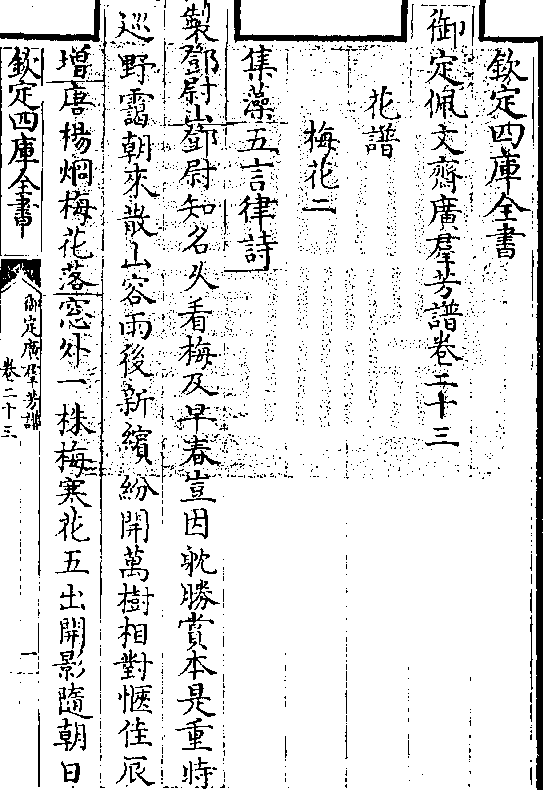 欽定四庫全書
御定佩文齋廣羣芳譜卷二十三
花譜
梅花二
集藻五言律詩
製鄧尉山鄧尉知名久看梅及早春豈因躭勝賞本是重時
巡野靄朝來散山容雨後新繽紛開萬樹相對愜佳辰
增唐楊烱梅花落窓外一株梅寒花五出開影隨朝日
欽定四庫全書
御定廣羣芳譜
卷二十三
一